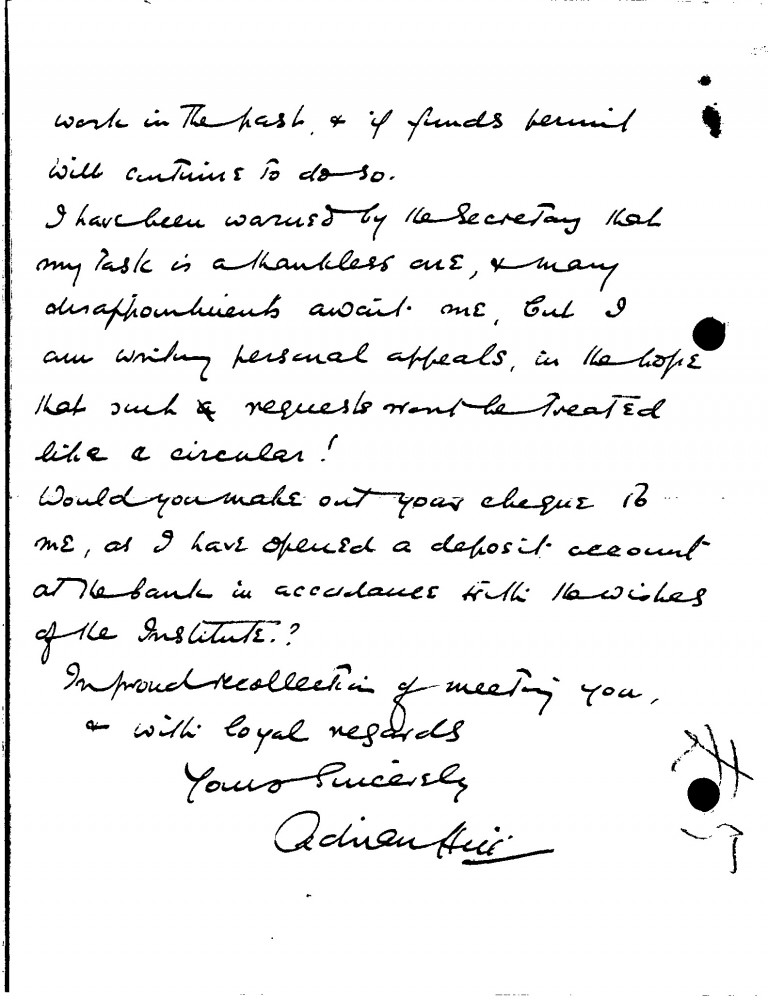 work in the past, & if funds permit
will continue to do so.
I have been warned by the Secretary that
my task is a thankless one, & many
disappointments await me, but I
am writing personal appeals, in the hope
that such requests wont be treated
like a circular!
Would you make out your cheque to
me, as I have opened a deposit account
at the bank in accordance with the wishes
of the Institute.?
In proud recollection of meeting you,
& with loyal regards
Yours Sincerely
Adrian Hill